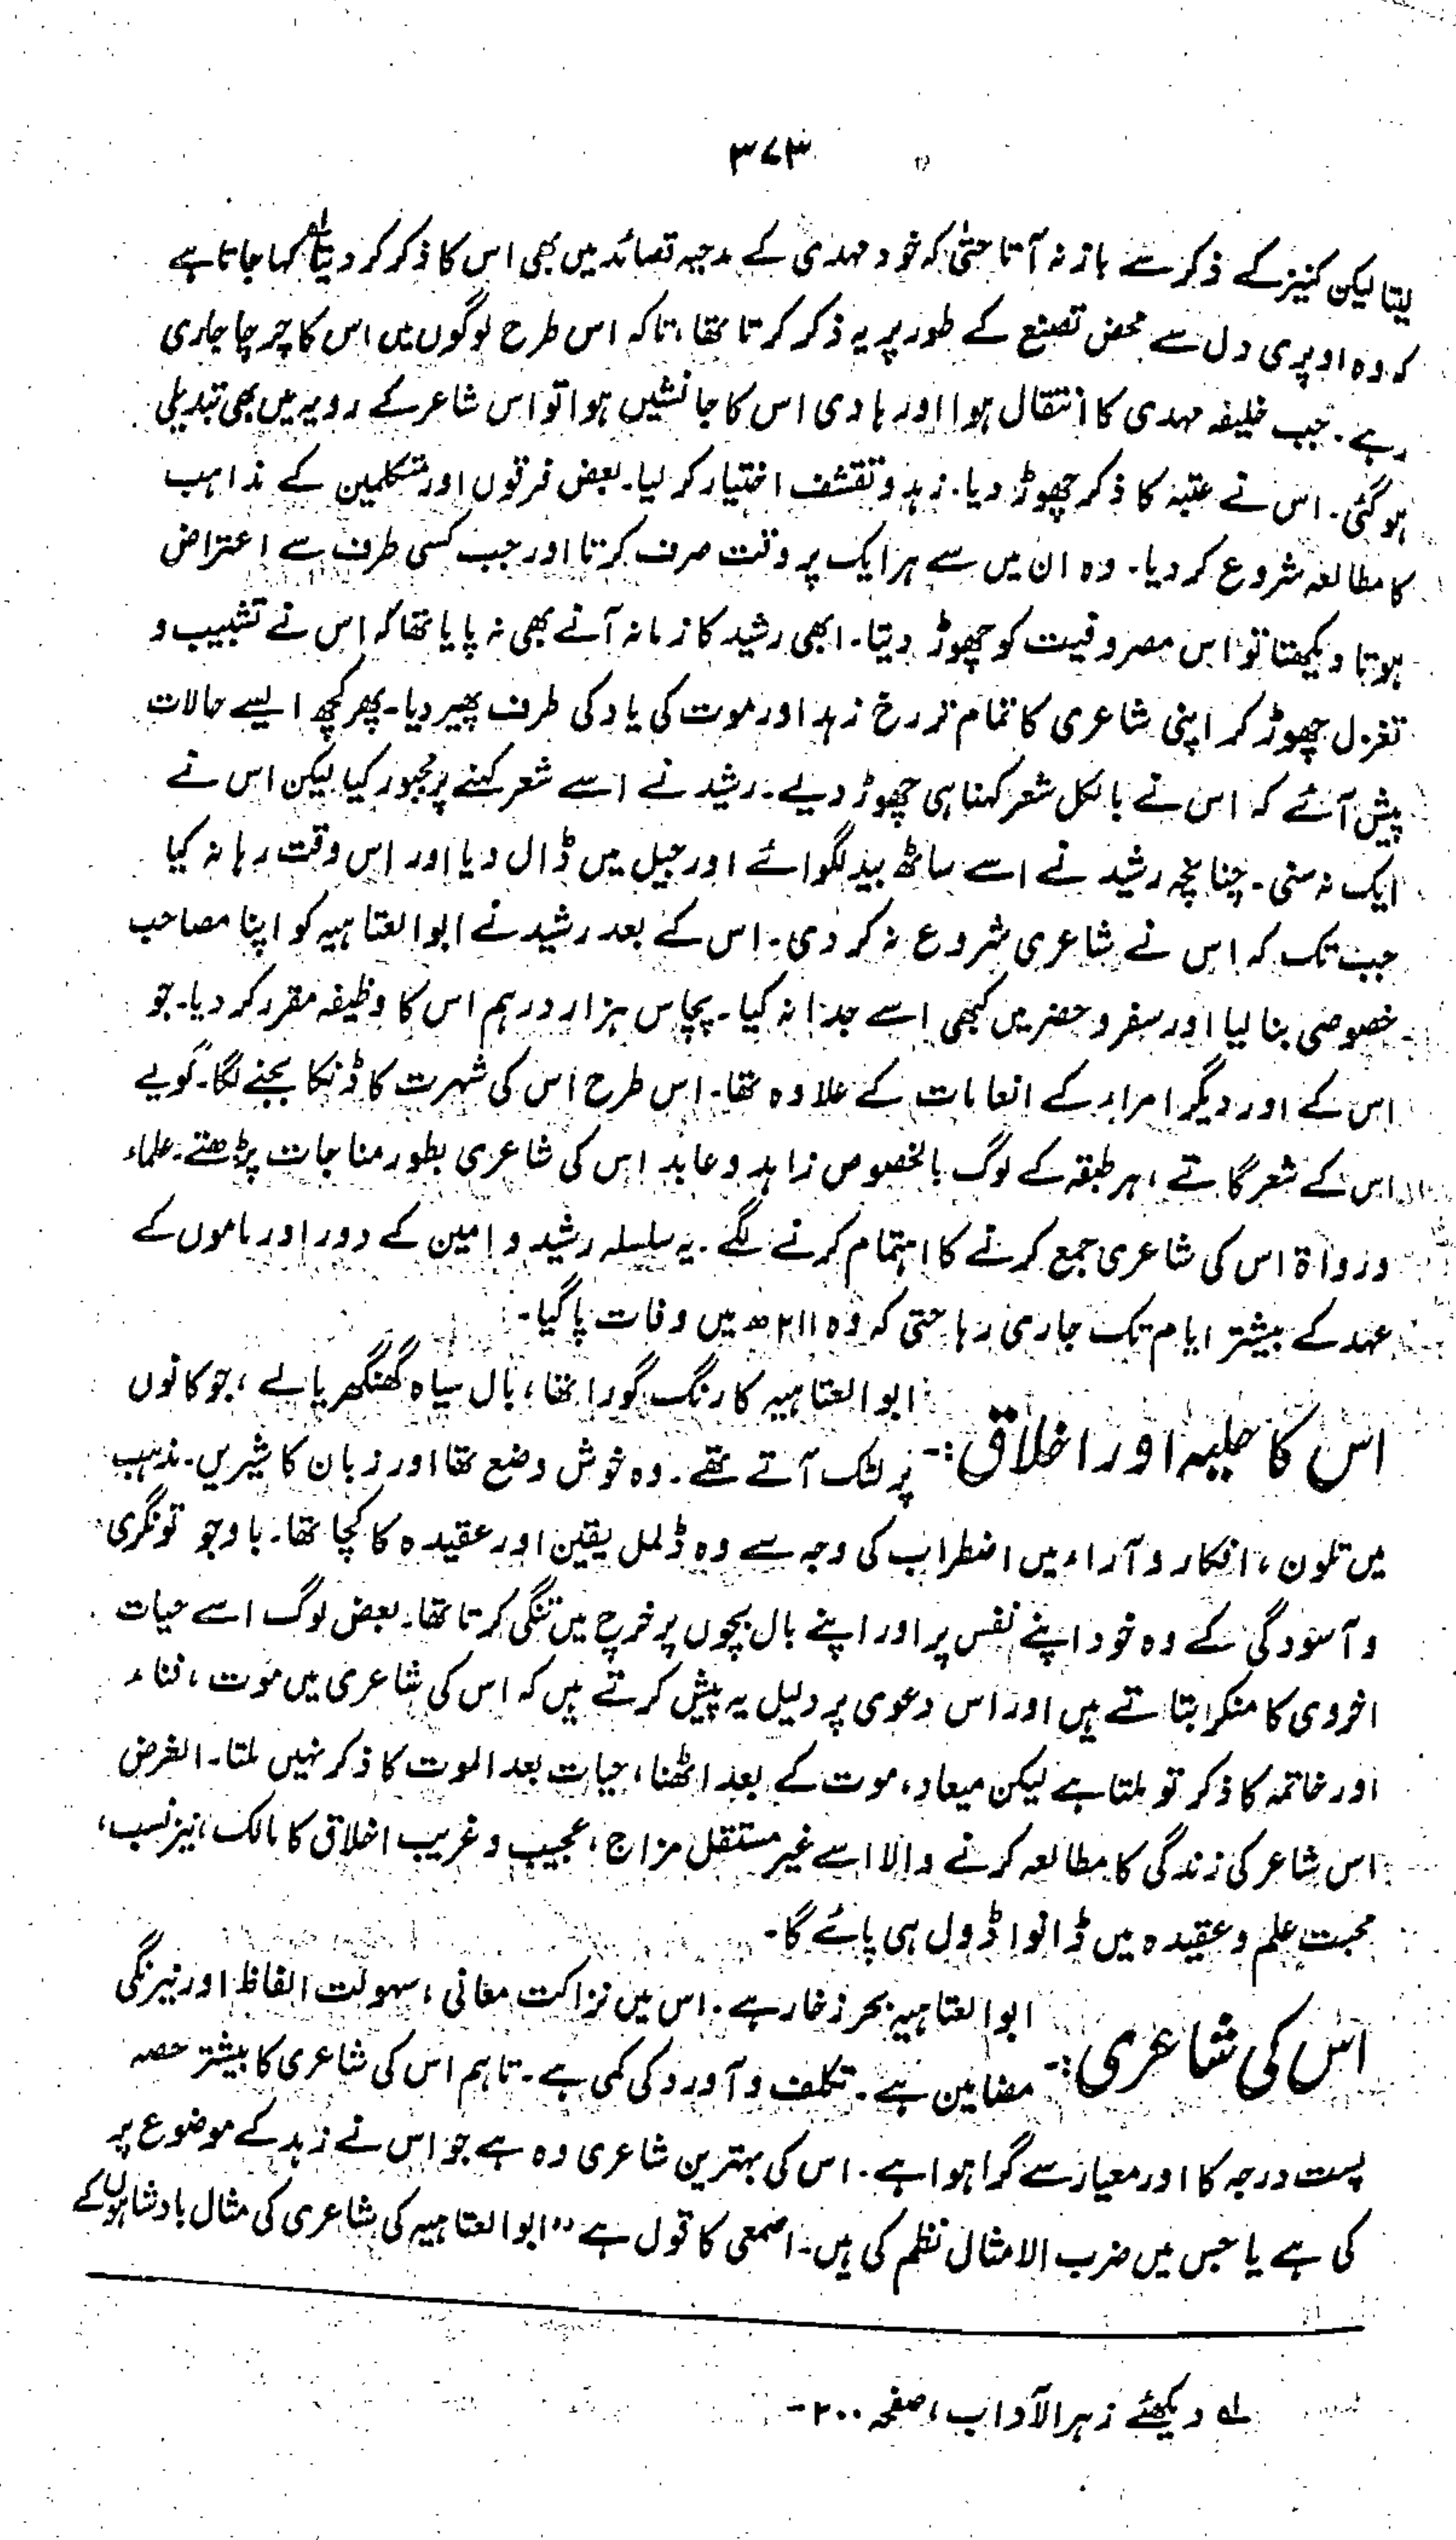 ۳۷۳
لیتا لیکن کنیز کے ذکر سے باز نہ آتا حتیٰ کہ خود مہدی کے مدحیہ قصائد میں بھی اس کا ذکر کر دیتا۔ کہا جاتا ہے
کہ وہ اوپری دل سے محض تصنع کے طور پر یہ ذکر کرتا تھا، تاکہ اس طرح لوگوں میں اس کا چرچا جاری
رہے۔ جب خلیفہ مہدی کا انتقال ہوا اور ہادی اس کا جانشیں ہوا تو اس شاعر کے رویہ میں بھی تبدیلی
ہو گئی۔ اس نے عتبہ کا ذکر چھوڑ دیا۔ زہد و تقشف اختیار کر لیا۔ بعض فرقوں اور متکلمین کے مذاہب
کا مطالعہ شروع کر دیا۔ وہ ان میں سے ہر ایک پر وقت صرف کرتا اور جب کسی طرف سے اعتراض
ہوتا دیکھتا تو اس مصروفیت کو چھوڑ دیتا۔ ابھی رشید کا زمانہ آنے بھی نہ پایا تھا کہ اس نے تشبیب و
تغزل چھوڑ کر اپنی شاعری کا تمام تر رخ زہد اور موت کی یاد کی طرف پھیر دیا۔ پھر کچھ ایسے حالات
پیش آئے کہ اس نے بالکل شعر کہنا ہی چھوڑ دیے۔ رشید نے اسے شعر کہنے پر مجبور کیا لیکن اس نے
ایک نہ سنی۔ چنانچہ رشید نے اسے ساٹھ بید لگوائے اور جیل میں ڈال دیا اور اس وقت رہا نہ کیا
جب تک کہ اس نے شاعری شروع نہ کر دی۔ اس کے بعد رشید نے ابوالعتاہیہ کو اپنا مصاحب
خصوصی بنا لیا اور سفر و حضر میں کبھی اسے جدا نہ کیا۔ پچاس ہزار درہم اس کا وظیفہ مقرر کر دیا۔ جو
اس کے اور دیگر امراء کے انعامات کے علاوہ تھا۔ اس طرح اس کی شہرت کا ڈنکا بجنے لگا۔ گویے
اس کے شعر گاتے، ہر طبقہ کے لوگ بالخصوص زاہد و عابد اس کی شاعری بطور مناجات پڑھتے۔ علماء
و رواۃ اس کی شاعری جمع کرنے کا اہتمام کرنے لگے۔ یہ سلسلہ رشید و امین کے دور اور ماموں کے
عہد کے بیشتر ایام تک جاری رہا حتی کہ وہ ۲۱۱ھ میں وفات پا گیا۔
اس کا حلیہ اور اخلاق:۔ ابوالعتاہیہ کا رنگ گورا تھا، بال سیاہ گھنگھریالے، جو کانوں
پر لٹک آتے تھے۔ وہ خوش وضع تھا اور زبان کا شیریں۔ مذہب
میں تلون، افکار و آراء میں اضطراب کی وجہ سے وہ ڈلمل یقین اور عقیدہ کا کچا تھا۔ باوجو تونگری
و آسودگی کے وہ خود اپنے نفس پر اور اپنے بال بچوں پر خرچ میں تنگی کرتا تھا۔ بعض لوگ اسے حیات
اخروی کا منکر بتاتے ہیں اور اس دعوی پر دلیل یہ پیش کرتے ہیں کہ اس کی شاعری میں موت، فناء
اور خاتمہ کا ذکر تو ملتا ہے لیکن میعاد، موت کے بعد اٹھنا، حیات بعد الموت کا ذکر نہیں ملتا۔ الغرض
اس شاعر کی زندگی کا مطالعہ کرنے والا اسے غیر مستقل مزاج، عجیب و غریب اخلاق کا مالک، نیز نسب،
محبت علم و عقیدہ میں ڈانوا ڈول ہی پائے گا۔
اس کی شاعری:۔ ابوالعتاہیہ بحر زخار ہے۔ اس میں نزاکت معانی، سہولت الفاظ اور نیرنگی
مضامین ہے۔ تکلف و آورد کی کمی ہے۔ تاہم اس کی شاعری کا بیشتر حصہ
پست درجہ کا اور معیار سے گرا ہوا ہے۔ اس کی بہترین شاعری وہ ہے جو اس نے زہد کے موضوع پر
کی ہے یا جس میں ضرب الامثال نظم کی ہیں۔ اصمعی کا قول ہے "ابوالعتاہیہ کی شاعری کی مثال بادشاہوں کے
لہ دیکھئے زہر الآداب، صفحہ ۲۰۰۔